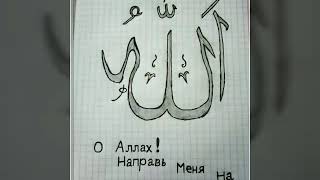 الله
О Аллах!
Направь Меня На